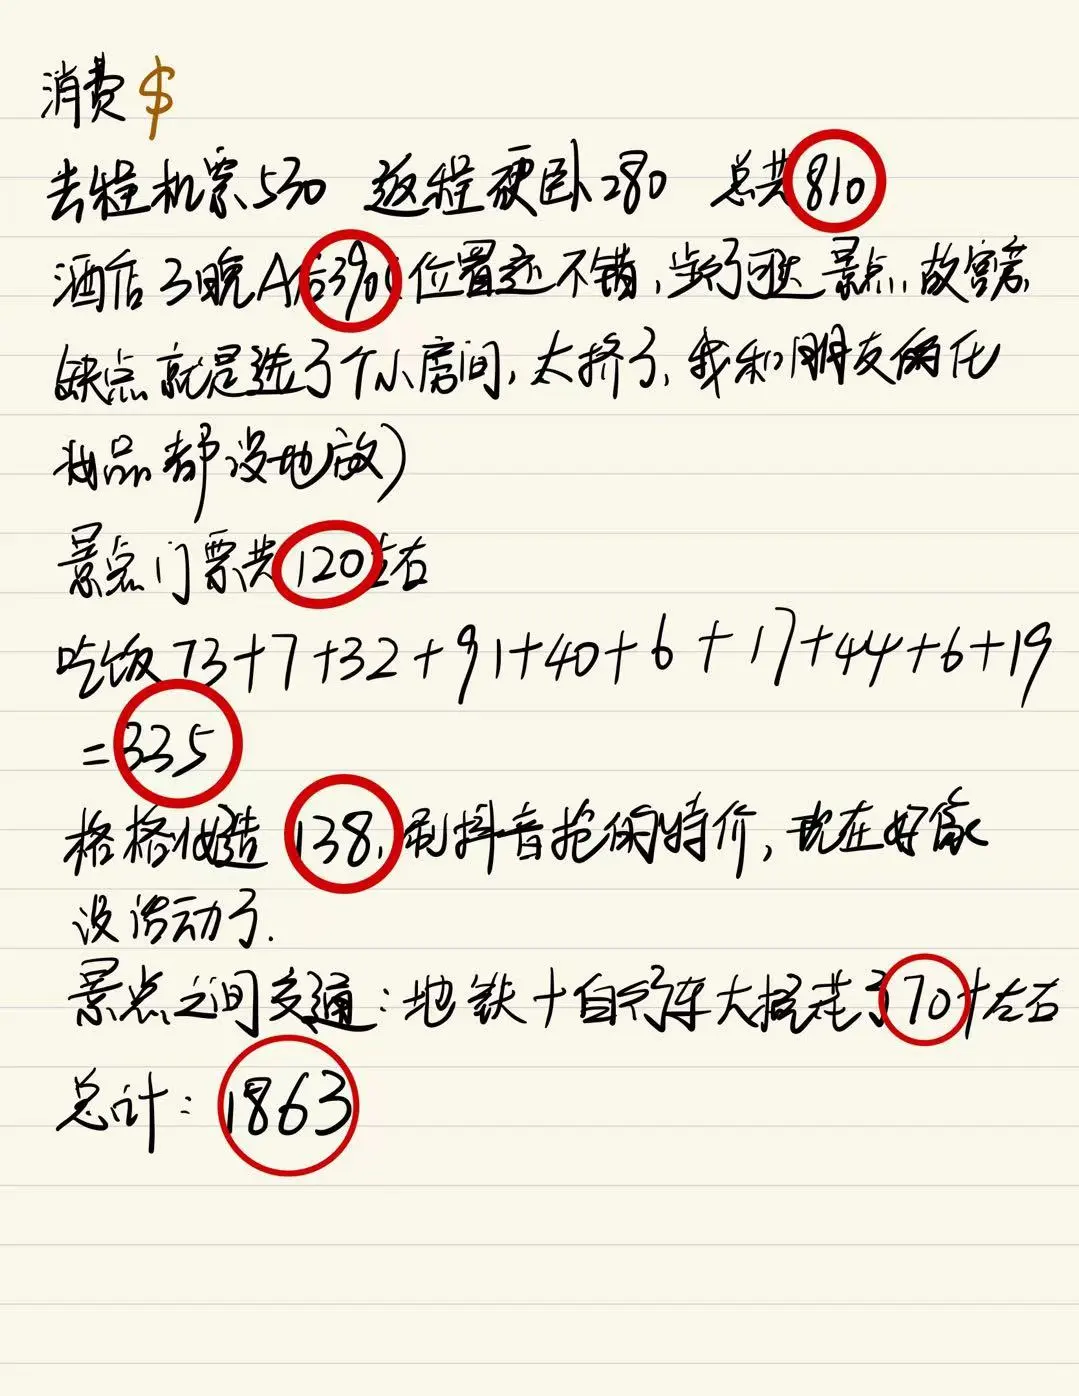 消费 $
去程机票530 返程硬卧280 总共810
酒店3晚A后390(位置还不错,步行可达景点,故宫旁,
缺点就是选了个小房间,太挤了,我和朋友俩化
妆品都没地放)
景点门票共120左右
吃饭 73+7+32+91+40+6+17+44+6+19
=335
格格妆造 138,刷抖音抢的特价,现在好像
没活动了.
景点之间交通:地铁+自行车大概花了70+左右
总计:1863